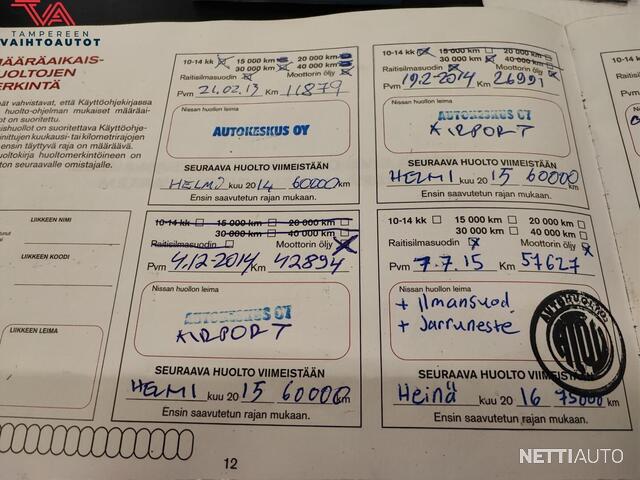 TAMPEREEN
VAIHTOAUTOT
MÄÄRÄAIKAIS-
UOLTOJEN
ERKINTÄ
ät vahvistavat, että Käyttöohjekirjassa
huolto-ohjelman mukaiset määräai-
ot on suoritettu.
ishuollot on suoritettava Käyttöohje-
inittujen kuukausi- tai kilometrirajojen
ensin täyttyvä raja on määräävä.
ltokirja huoltomerkintöineen on
ton seuraavalle omistajalle.
LIIKKEEN NIMI
LIIKKEEN KOODI
LIIKKEEN LEIMA
10-14 kk 15 000 km 20 000 km
30 000 km 40 000 km
Raitisilmasuodin Moottorin öljy
Pvm 21.02.13 Km 11879
Nissan huollon leima
AUTOKESKUS OY
SEURAAVA HUOLTO VIIMEISTÄÄN
HELMI kuu 2014 60000 km
Ensin saavutetun rajan mukaan.
10-14 kk 15 000 km 20 000 km
30 000 km 40 000 km
Raitisilmasuodin Moottorin öljy
Pvm 19.2-2014 Km 26991
Nissan huollon leima
AUTOKESKUS OY
AIRPORT
SEURAAVA HUOLTO VIIMEISTÄÄN
HELMI kuu 2015 60000 km
Ensin saavutetun rajan mukaan.
10-14 kk 15 000 km 20 000 km
30 000 km 40 000 km
Raitisilmasuodin Moottorin öljy
Pvm 4.12-2014 Km 42894
Nissan huollon leima
AUTOKESKUS OY
AIRPORT
SEURAAVA HUOLTO VIIMEISTÄÄN
HELMI kuu 2015 60000 km
Ensin saavutetun rajan mukaan.
10-14 kk 15 000 km 20 000 km
30 000 km 40 000 km
Raitisilmasuodin Moottorin öljy
Pvm 7.7.15 Km 57627
Nissan huollon leima
+ Ilmansuod
+ Jarruneste
AUTOHUOLTO
SEURAAVA HUOLTO VIIMEISTÄÄN
Heinä kuu 2016 75000 km
Ensin saavutetun rajan mukaan.
12
NETTIAUTO